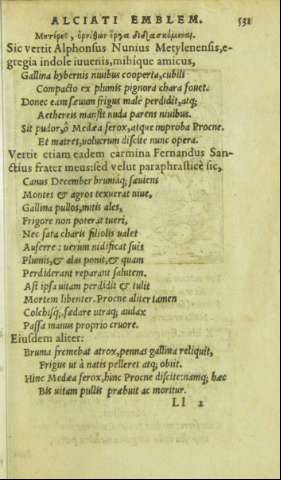 ALCIATI EMBLEM. 531
Μητέρες, ὀρνίθων ἔργα διδασκόμεναι.
Sic vertit Alphonsus Nunius Metylenensis, e-
gregia indole iuuenis, mihique amicus,
Gallina hybernis niuibus cooperta, cubili
Compacto ex plumis pignora chara fouet.
Donec eam sæuum frigus male perdidit, atq;
Aethereis mansit nuda parens niuibus.
Sit pudor, ô Medæa ferox, atque improba Procne.
Et matres, uolucrum discite nunc opera.
Vertit etiam eadem carmina Fernandus San-
ctius frater meus: sed velut paraphrastice sic,
Canus December brumáq; sæuiens
Montes & agros texuerat niue,
Gallina pullos, mitis ales,
Frigore non poterat tueri,
Nec sata charis filiolis ualet
Auferre: uerum nidificat suis
Plumis, & alas ponit, & quam
Perdiderant reparant salutem.
Ast ipsa uitam perdidit & tulit
Mortem libenter. Procne aliter tamen
Colchisq́, sædare utraq; audax
Passa manus proprio cruore.
Eiusdem aliter:
Bruma fremebat atrox, pennas gallina reliquit,
Frigus ut à natis pelleret atq; obiit.
Hinc Medæa ferox, hinc Procne discite: namq; hæc
Bis uitam pullis præbuit ac moritur.
Ll 2